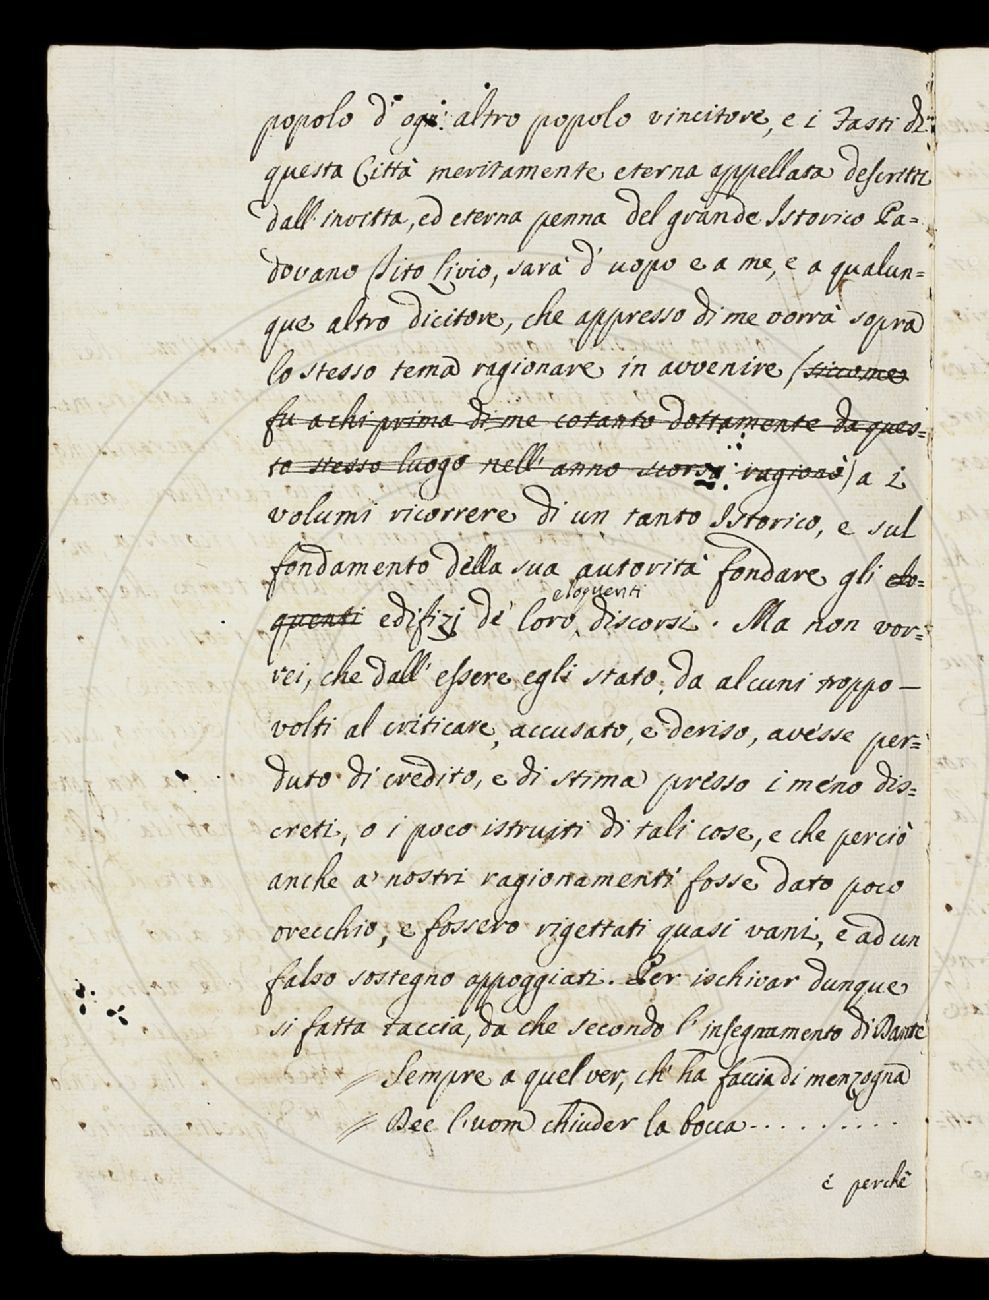 popolo d'ogn' altro popolo vincitore, e i Fasti di
questa Città meritamente eterna appellata descritti
dall'invitta, ed eterna penna del grande Istorico Pa=
dovano Tito Livio, sarà d'uopo e a me, e a qualun=
que altro dicitore, che appresso di me vorrà sopra
lo stesso tema ragionare in avvenire (siccome
fu a chi prima di me cotanto dottamente da ques=
to stesso luogo nell'anno scorso ragionò) a i
volumi ricorrere di un tanto Istorico, e sul
fondamento della sua autorità fondare gli elo=
quenti edifizj de' loro eloquenti discorsi. Ma non vor=
rei, che dall'essere egli stato, da alcuni troppo —
volti al criticare, accusato, e deriso, avesse per=
duto di credito, e di stima presso i meno dis=
creti, o i poco istruiti di tali cose, e che perciò
anche a' nostri ragionamenti fosse dato poco
orecchio, e fossero rigettati quasi vani, e ad un
falso sostegno appoggiati. Per ischivar dunque
si fatta taccia, da che secondo l'insegnamento di Dante
// Sempre a quel ver, ch'ha faccia di menzogna
// Dee l'uom chiuder la bocca..........
e perchè